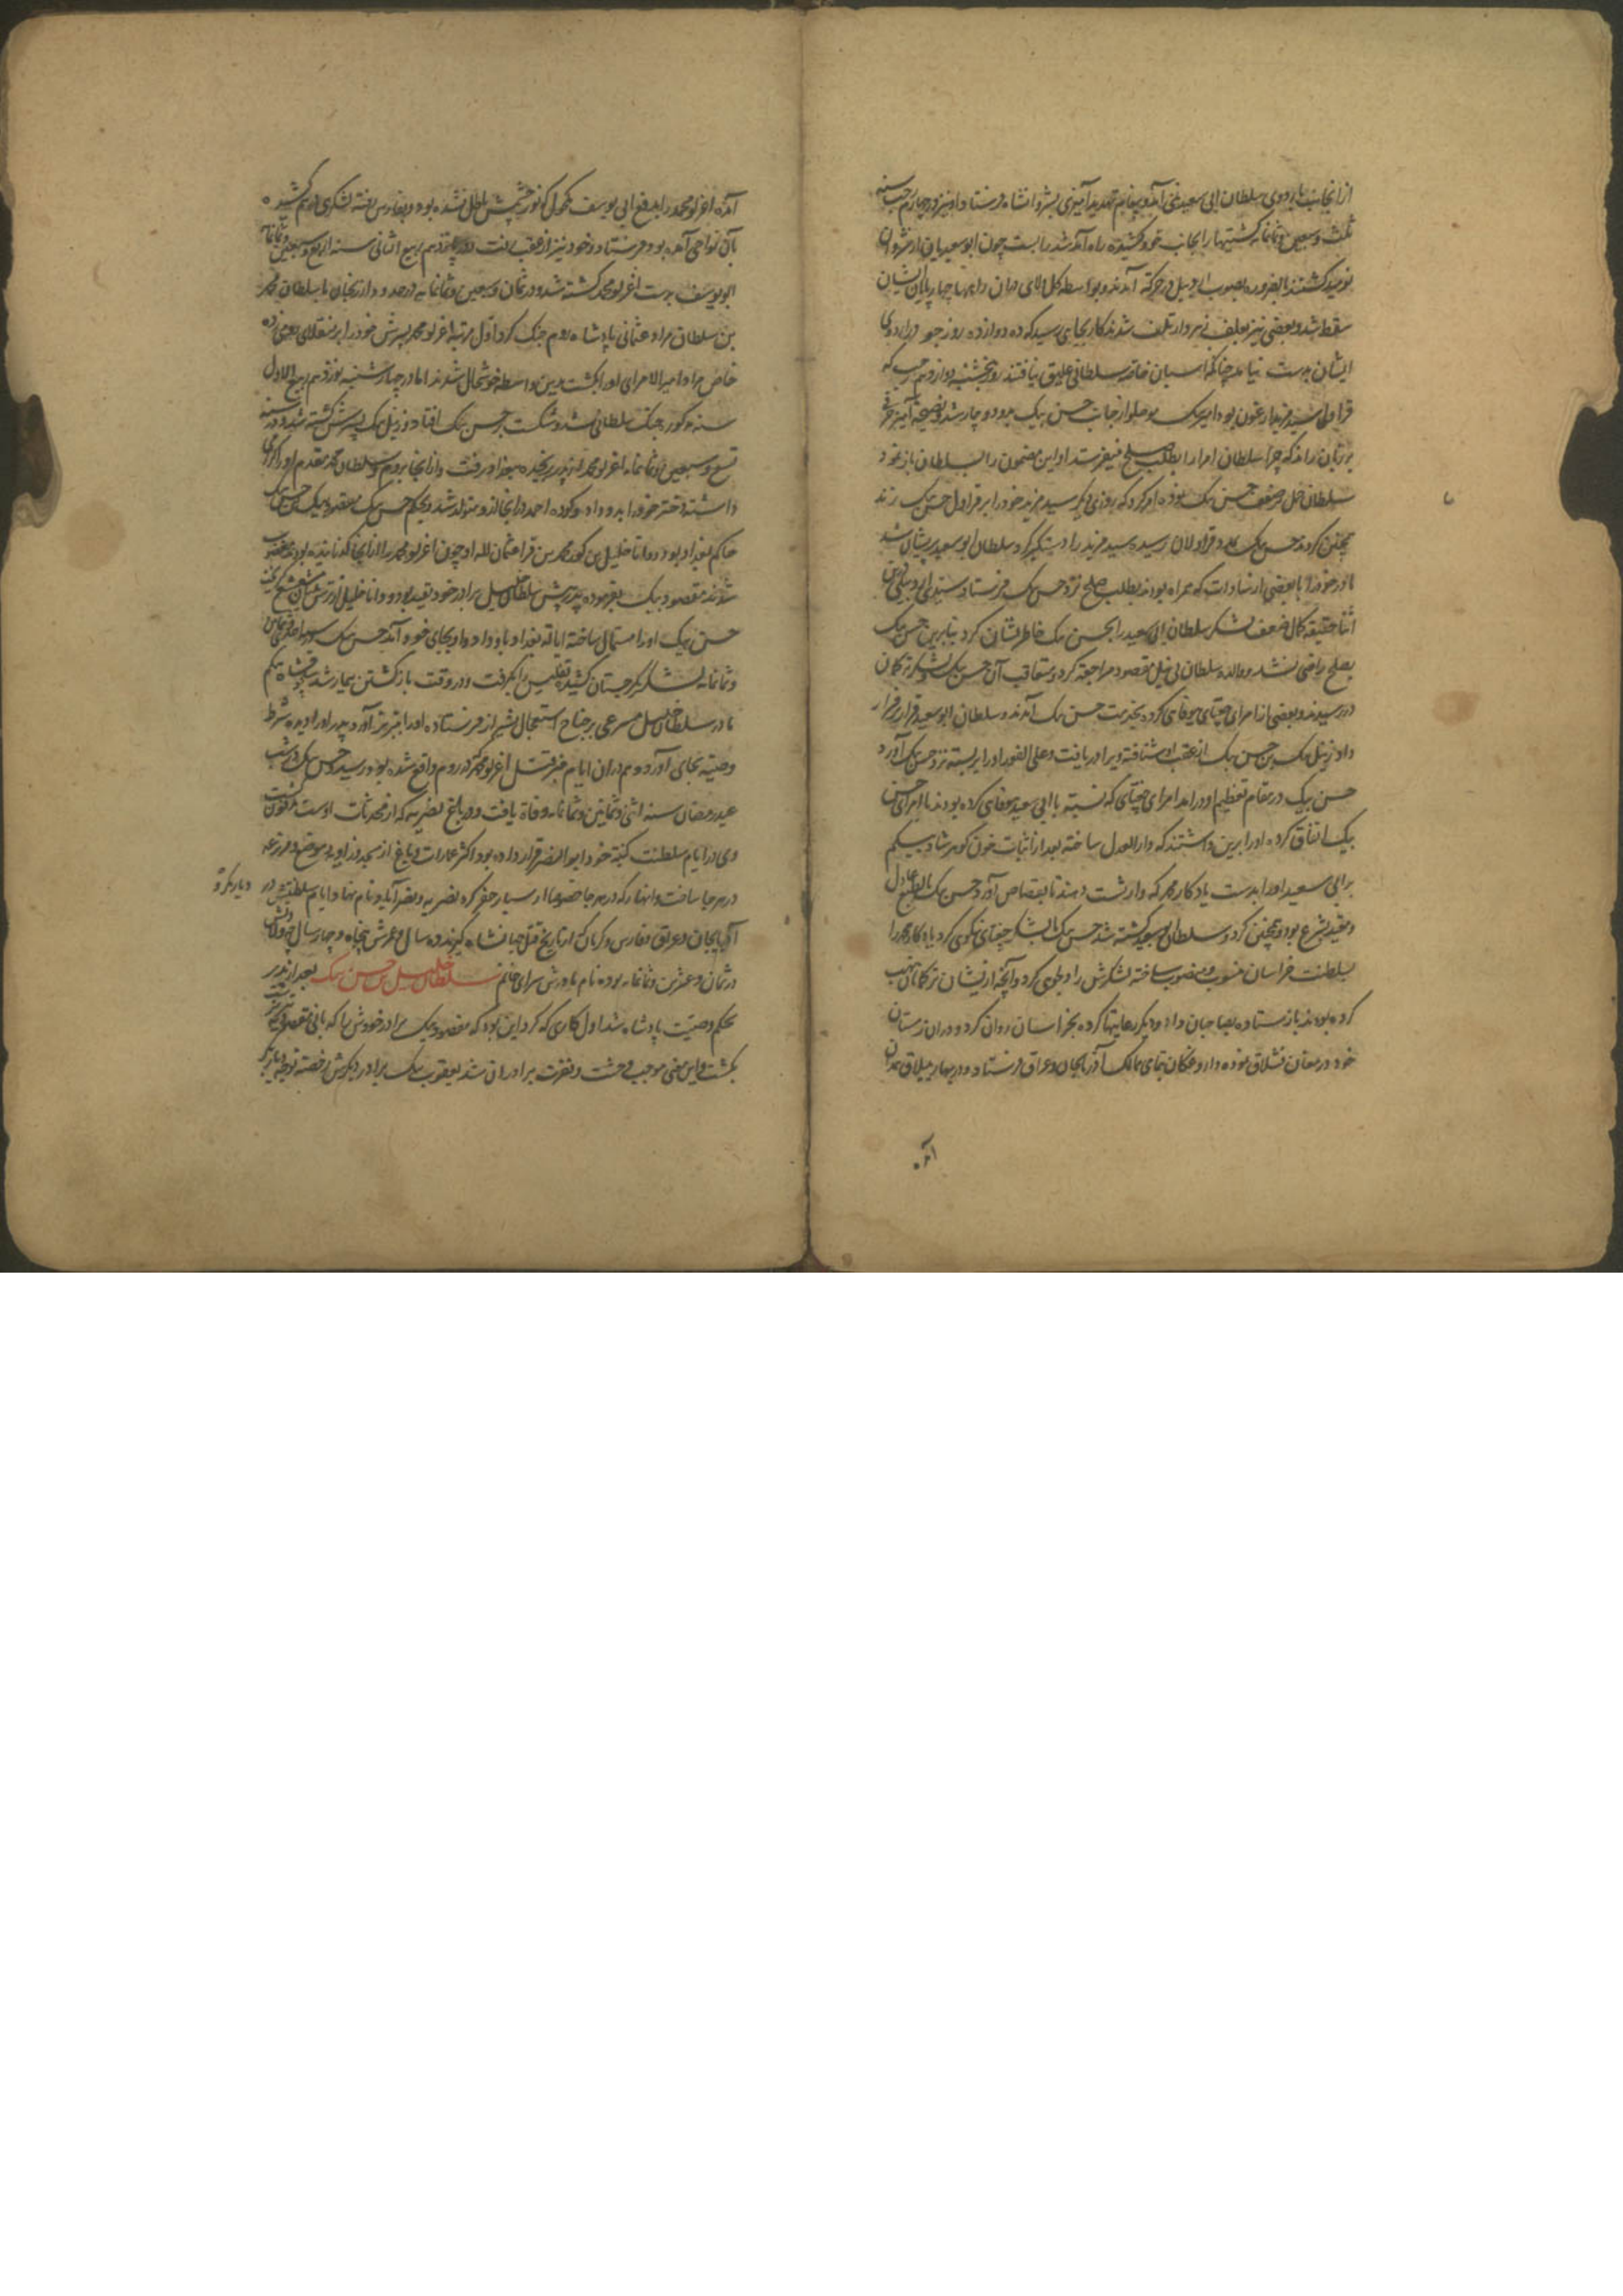 از آنجانب باردوی سلطان ابی سعید غنی آمد و پیغام تهدید آمیزی بشروانشاه فرستاد و او نیز روز چهارم رجب سنه
ثلث و سبعین و ثمانمایه کشتیها را بجانب خود کشیده راه آمد شد را بست چون ابو سعیدیان از شروان
نومید کشتند بالضروره بصوب اردبیل در حرکة آمدند و بواسطه کل لای میان راه بهاء چهارپایان ایشان
سقط شد و بعضی نیز بعلف زهردار تلف شدند کار بجای رسید که ده دوازده روز جو در اردوی
ایشان بدست نیامد چنانکه اسبان خاصه سلطانی علیق نیافتند روز پنجشنبه دوازدهم رجب که
قراول سید مزید ارغون بود امیر بیک موصلو از جانب حسن بیک بدو دوچار شد و نصیحة آمیز حرفی
بر زبان راند که چرا سلطان امرا را بطلب صلح نمیفرستد او این مضمون را بسلطان باز نمود
سلطان حمل بر ضعف حسن بیک نموده امر کرد که روزی دیکر سید مزید خود را بر قراول حسن بیک زند
همچنین کردند حسن بیک بمدد قراولان رسیده سید مزید را دستکیر کرد سلطان ابو سعید پریشان شد
مادر خود را با بعضی از سادات که همراه بودند بطلب صلح نزد حسن بیک فرستاد سید اردبیلی درین
اثنا حقیقة کمال ضعف لشکر سلطان ابی سعید را بحسن بیک خاطر نشان کرد بنابرین حسن بیک
بصلح راضی نشد و والده سلطان بی نیل مقصود مراجعة کرد و متعاقب آن حسن بیک و لشکر ترکمان
در رسیدند و بعضی از امرای جغتای بیوفای کرده بخدمت حسن بیک آمدند و سلطان ابو سعید قرار بر فرار
داد زینل بیک بن حسن بیک از عقب او شتافته ویرا دریافت و علی الفور او را بربسته نزد حسن بیک آورد
حسن بیک در مقام تعظیم او درآمد امرای جغتای که نسبة با ابی سعید بیوفای کرده بودند با امرای حسن
بیک اتفاق کرده او را برین داشتند که دار العدل ساخته بعد از اثبات خون کوهرشاد بیکم
بر ابی سعید او را بدست یادکار محمد که وارثست دهند تا بقصاص آورد حسن بیک بالطبع عادل
و مقید بشرع بود همچنین کرد و سلطان ابو سعید کشته شد حسن بیک با لشکر جغتای نیکوی کرد یادکار محمد را
بسلطنت خراسان منسوب و منصوب ساخته لشکرش را دلجوی کرد و آنچه از یشان ترکمانان نهب
کرده بودند باز ستاده بصاحبان داد و دیکر رعایتها کرده بخراسان روان کرد و در آن زمستان
خود در مغان قشلاق نموده داروغکان بتمامی ممالک آذربایجان و عراق فرستاد و در بهار بییلاق همدان
آمده
آمده اغرلو محمد را بدفع ابی یوسف مکحول که نور چشمش باطل نشده بود و بفارس رفته لشکری بهم کشیده
بآن نواحی آمده بود فرستاد و خود نیز از عقب رفت روز پانزدهم ربیع الثانی سنه اربع و سبعین و ثمانمایه
ابو یوسف بدست اغرلو محمد کشته شد و در ثمان و سبعین و ثمانمایه در حدود ارزنجان با سلطان محمد
بن سلطان مراد عثمانی پادشاه روم جنک کرد اول مرتبه اغرلو محمد پسرش خود را بر منقلای رومی زده
خاص مراد امیر الامرای او را بکشت بدین واسطه خوشحال شدند اما در چهارشنبه نوزدهم ربیع الاول
سنه مذکور جنک سلطانی شد و شکست بر حسن بیک افتاد و زینل بیک پسرش کشته شد و در سنه
تسع و سبعین و ثمانمایه اغرلو محمد از پدر رنجیده ببغداد رفت و از آنجا بروم و سلطان محمد مقدم او را کرامی
داشته دختر خود را بدو داد و کوده احمد در آنجا از و متولد شد و بحکم حسن بیک مقصود بیک بن حسن بیک
حاکم بغداد بود و مولانا خلیل بن کور محمد بن قرا عثمان لله او چون اغرلو محمد را از آنجا کذرانیده بودند مغضوب
شدند مقصود بیک بفرموده پدر پیش سلطان خلیل برادر خود بقید بود و مولانا خلیل از ترس کریخت
حسن بیک او را استمال ساخته ایالة بغداد باو داد و او بجای خود آمد حسن بیک در
و ثمانمایه لشکر بکرجستان کشیده تفلیس را بکرفت و در وقت باز کشتن بیمار شد سلجوقشاه بیکم
مادر سلطان خلیل مسرعی بر جناح استعجال بشیراز فرستاده او را بتبریز آورد پدر او را دیده شرط
وصیة بجای آورد و هم در آن ایام خبر قتل اغرلو محمد که در روم واقع شده بود رسید حسن بیک در شب
عید رمضان سنه اثنی و ثمانین و ثمانمایه وفاة یافت و در باغ نصریه که از محدثات اوست مدفون کشت
وی در ایام سلطنت کنیة خود ابو النصر قرار داده بود اکثر عمارات و باغ از مسجد و زاویه و موضع و مزرعه
در هر جا ساخت و انهار که در هر جا خصوصا از سیار حفر کرد نصریه و نصرآباد نام نهاد ایام سلطنتش در دیاربکر و
آذربایجان و عراق و فارس و کرمان که از تاریخ قتل جهانشاه کیرند ده سال و عمرش پنجاه و چهار سال و ولادتش
در ثمان و عشرین و ثمانمایه بوده نام مادرش سرای خاتم سلطان خلیل بن حسن بیک بعد از پدر
بحکم وصیت پادشاه شد اول کاری که کرد این بود که مقصود بیک برادر خودش را
بکشت و این معنی موجب وحشت و نفرت برادران شد یعقوب بیک برادر دیکرش رخصة